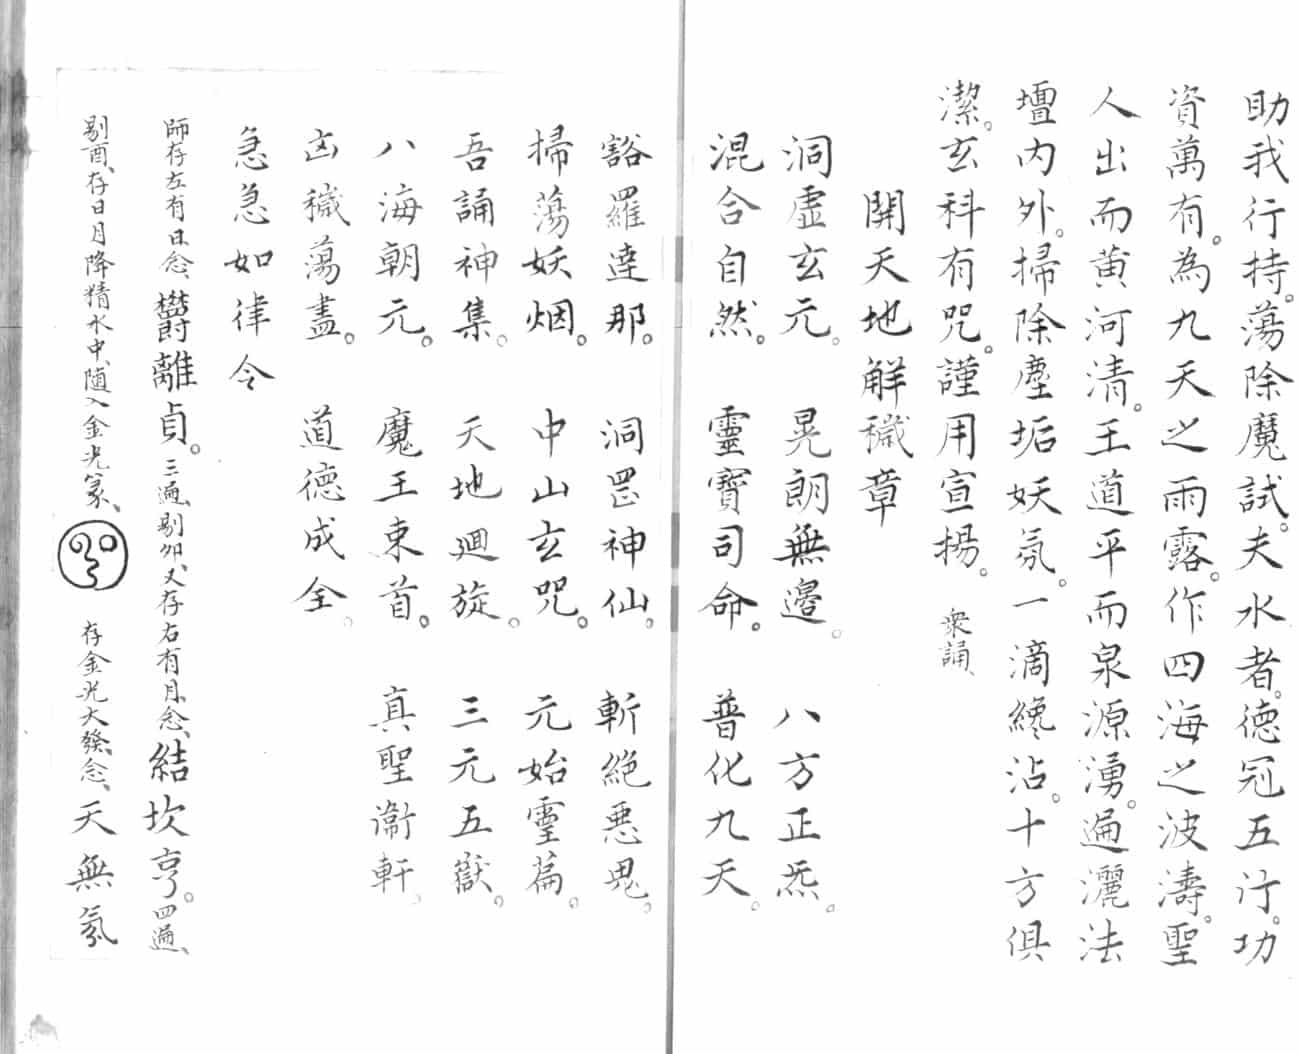 助我行持。蕩除魔試。夫水者。德冠五行。功
資萬有。為九天之雨露。作四海之波濤。聖
人出而黃河清。王道平而泉源湧。遍灑法
壇內外。掃除塵垢妖氛。一滴纔沾。十方俱
潔。玄科有咒。謹用宣揚。 衆誦、
開天地解穢章
洞虛玄元。 晃朗無邊。 八方正炁。
混合自然。 靈寶司命。 普化九天。
豁羅達那。 洞罡神仙。 斬絕惡鬼。
掃蕩妖烟。 中山玄咒。 元始靈篇。
吾誦神集。 天地迴旋。 三元五嶽。
八海朝元。 魔王束首。 真聖衛軒。
凶穢蕩盡。 道德成全。
急急如律令
師存左有日、念、欝離貞。三遍、剔夘、又存右有月、念、結坎亨。四遍、
剔酉、存日月降精水中、随入金光篆、 存金光大發、念、天無氛